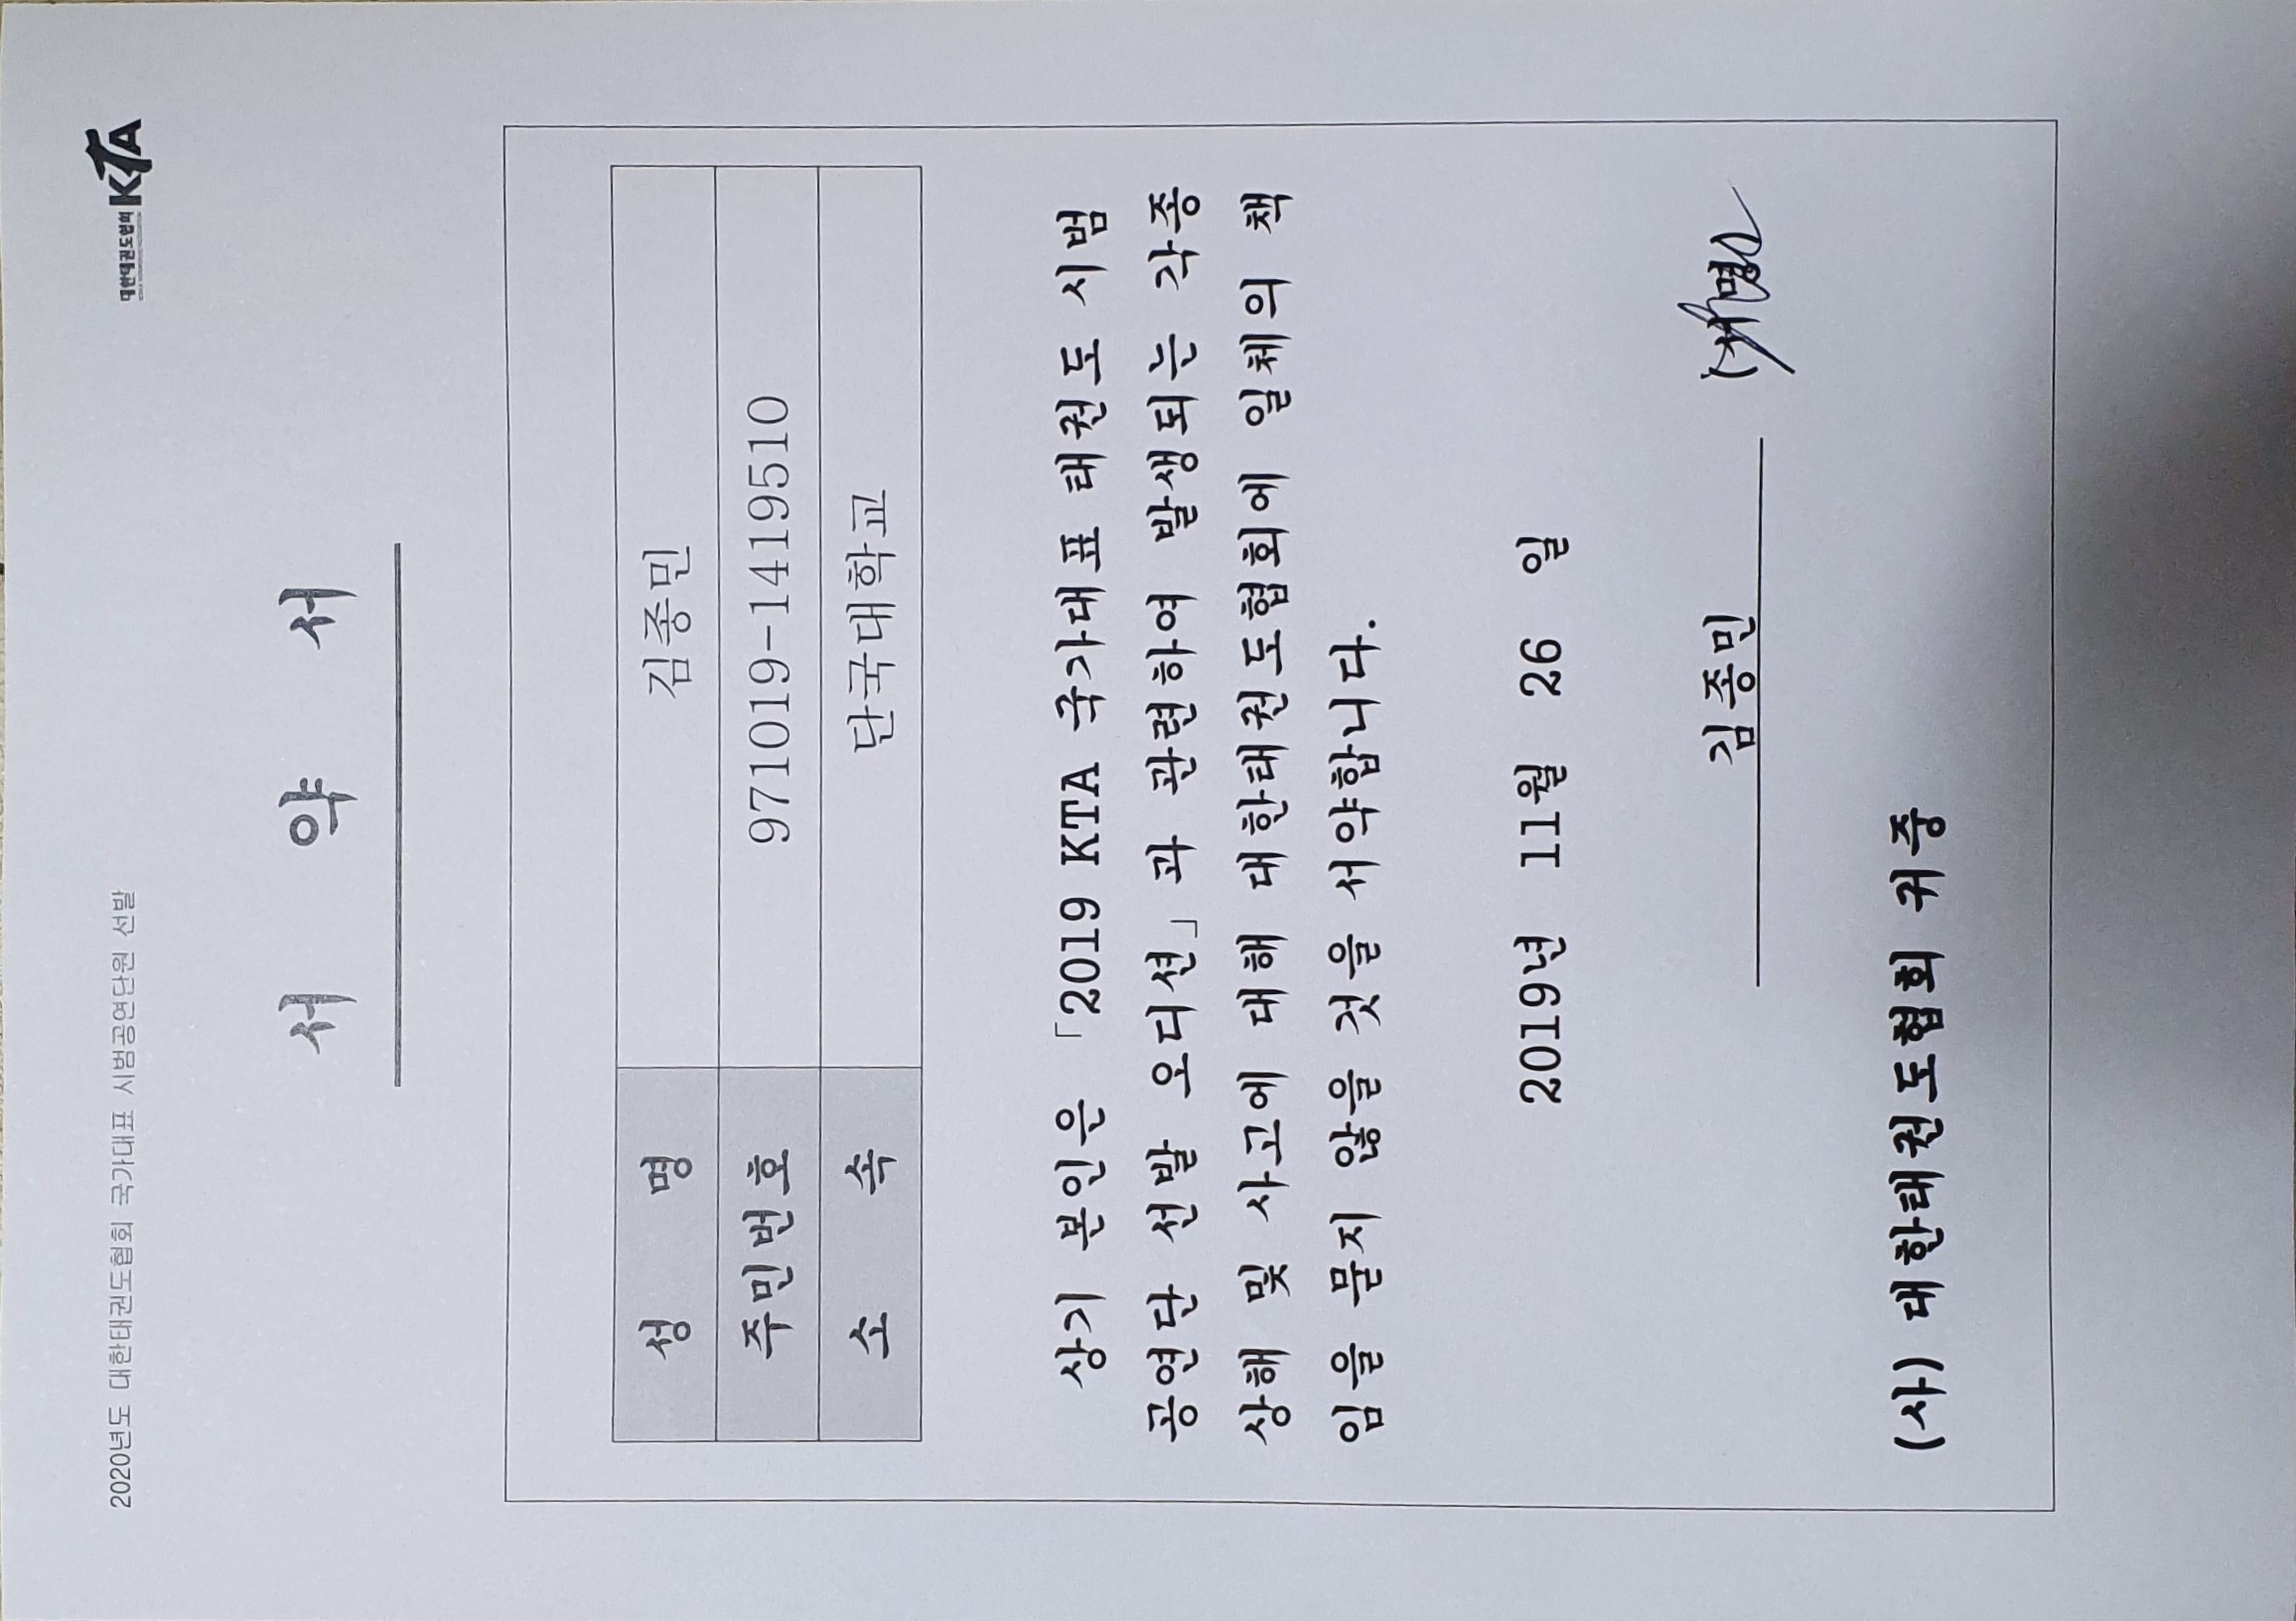 2020년도 대한태권도협회 국가대표 시범공연단원 선발
대한태권도협회 KTA
서 약 서
성 명 김종민
주민번호 971019-1419510
소 속 단국대학교
상기 본인은 「2019 KTA 국가대표 태권도 시범
공연단 선발 오디션」과 관련하여 발생되는 각종
상해 및 사고에 대해 대한태권도협회에 일체의 책
임을 묻지 않을 것을 서약합니다.
2019년 11월 26 일
김종민 (서명)
(사) 대한태권도협회 귀중